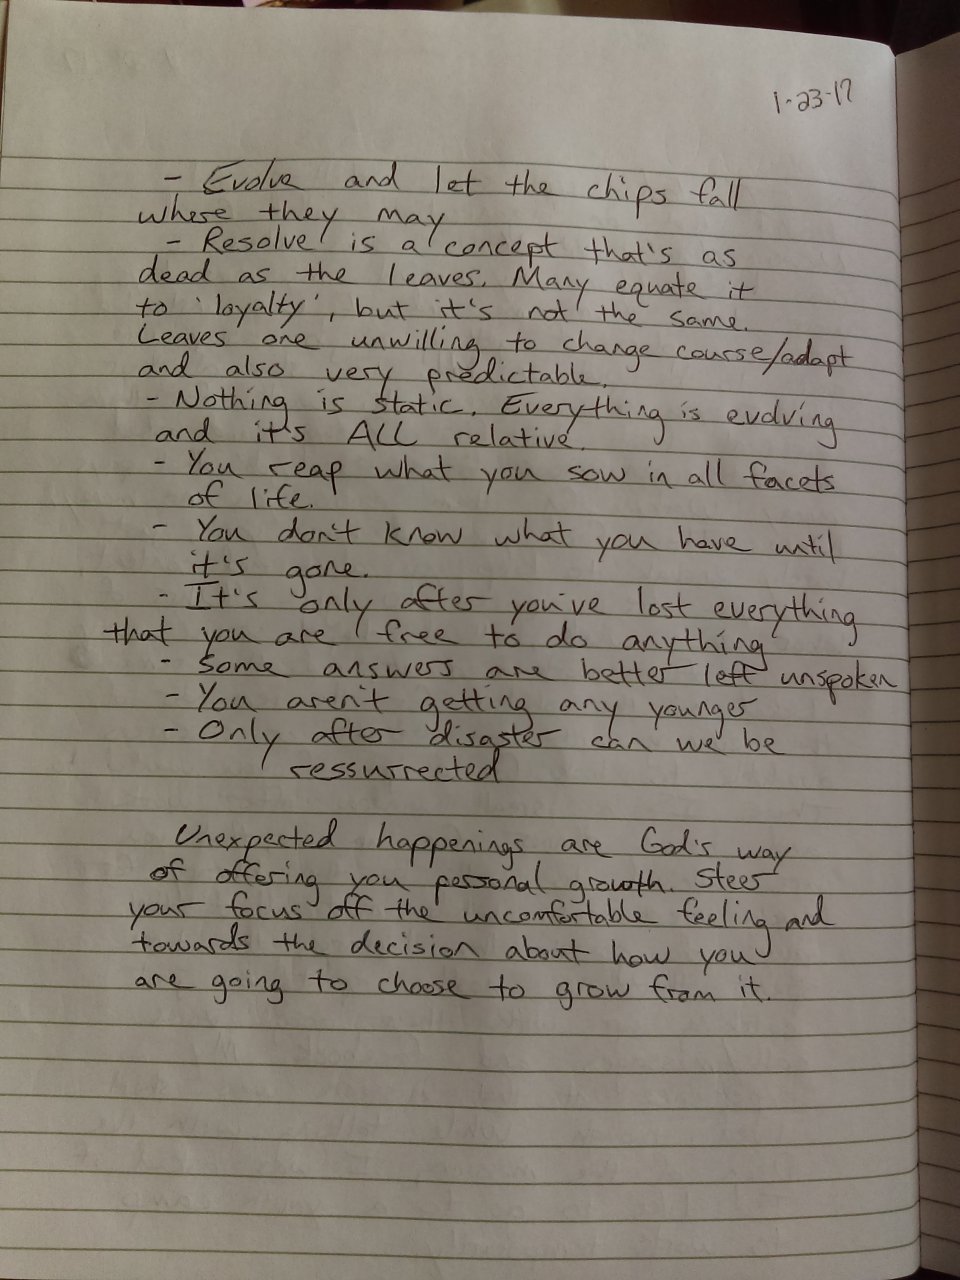 1-23-17
- Evolve and let the chips fall
where they may
- Resolve is a concept that's as
dead as the leaves. Many equate it
to 'loyalty', but it's not the same.
Leaves are unwilling to change course/adapt
and also very predictable.
- Nothing is static. Everything is evolving
and it's ALL relative.
- You reap what you sow in all facets
of life.
- You don't know what you have until
it's gone.
- It's only after you've lost everything
that you are free to do anything
- Some answers are better left unspoken
- You aren't getting any younger
- Only after disaster can we be
ressurrected
Unexpected happenings are God's way
of offering you personal growth. Steer
your focus off the uncomfortable feeling and
towards the decision about how you
are going to choose to grow from it.